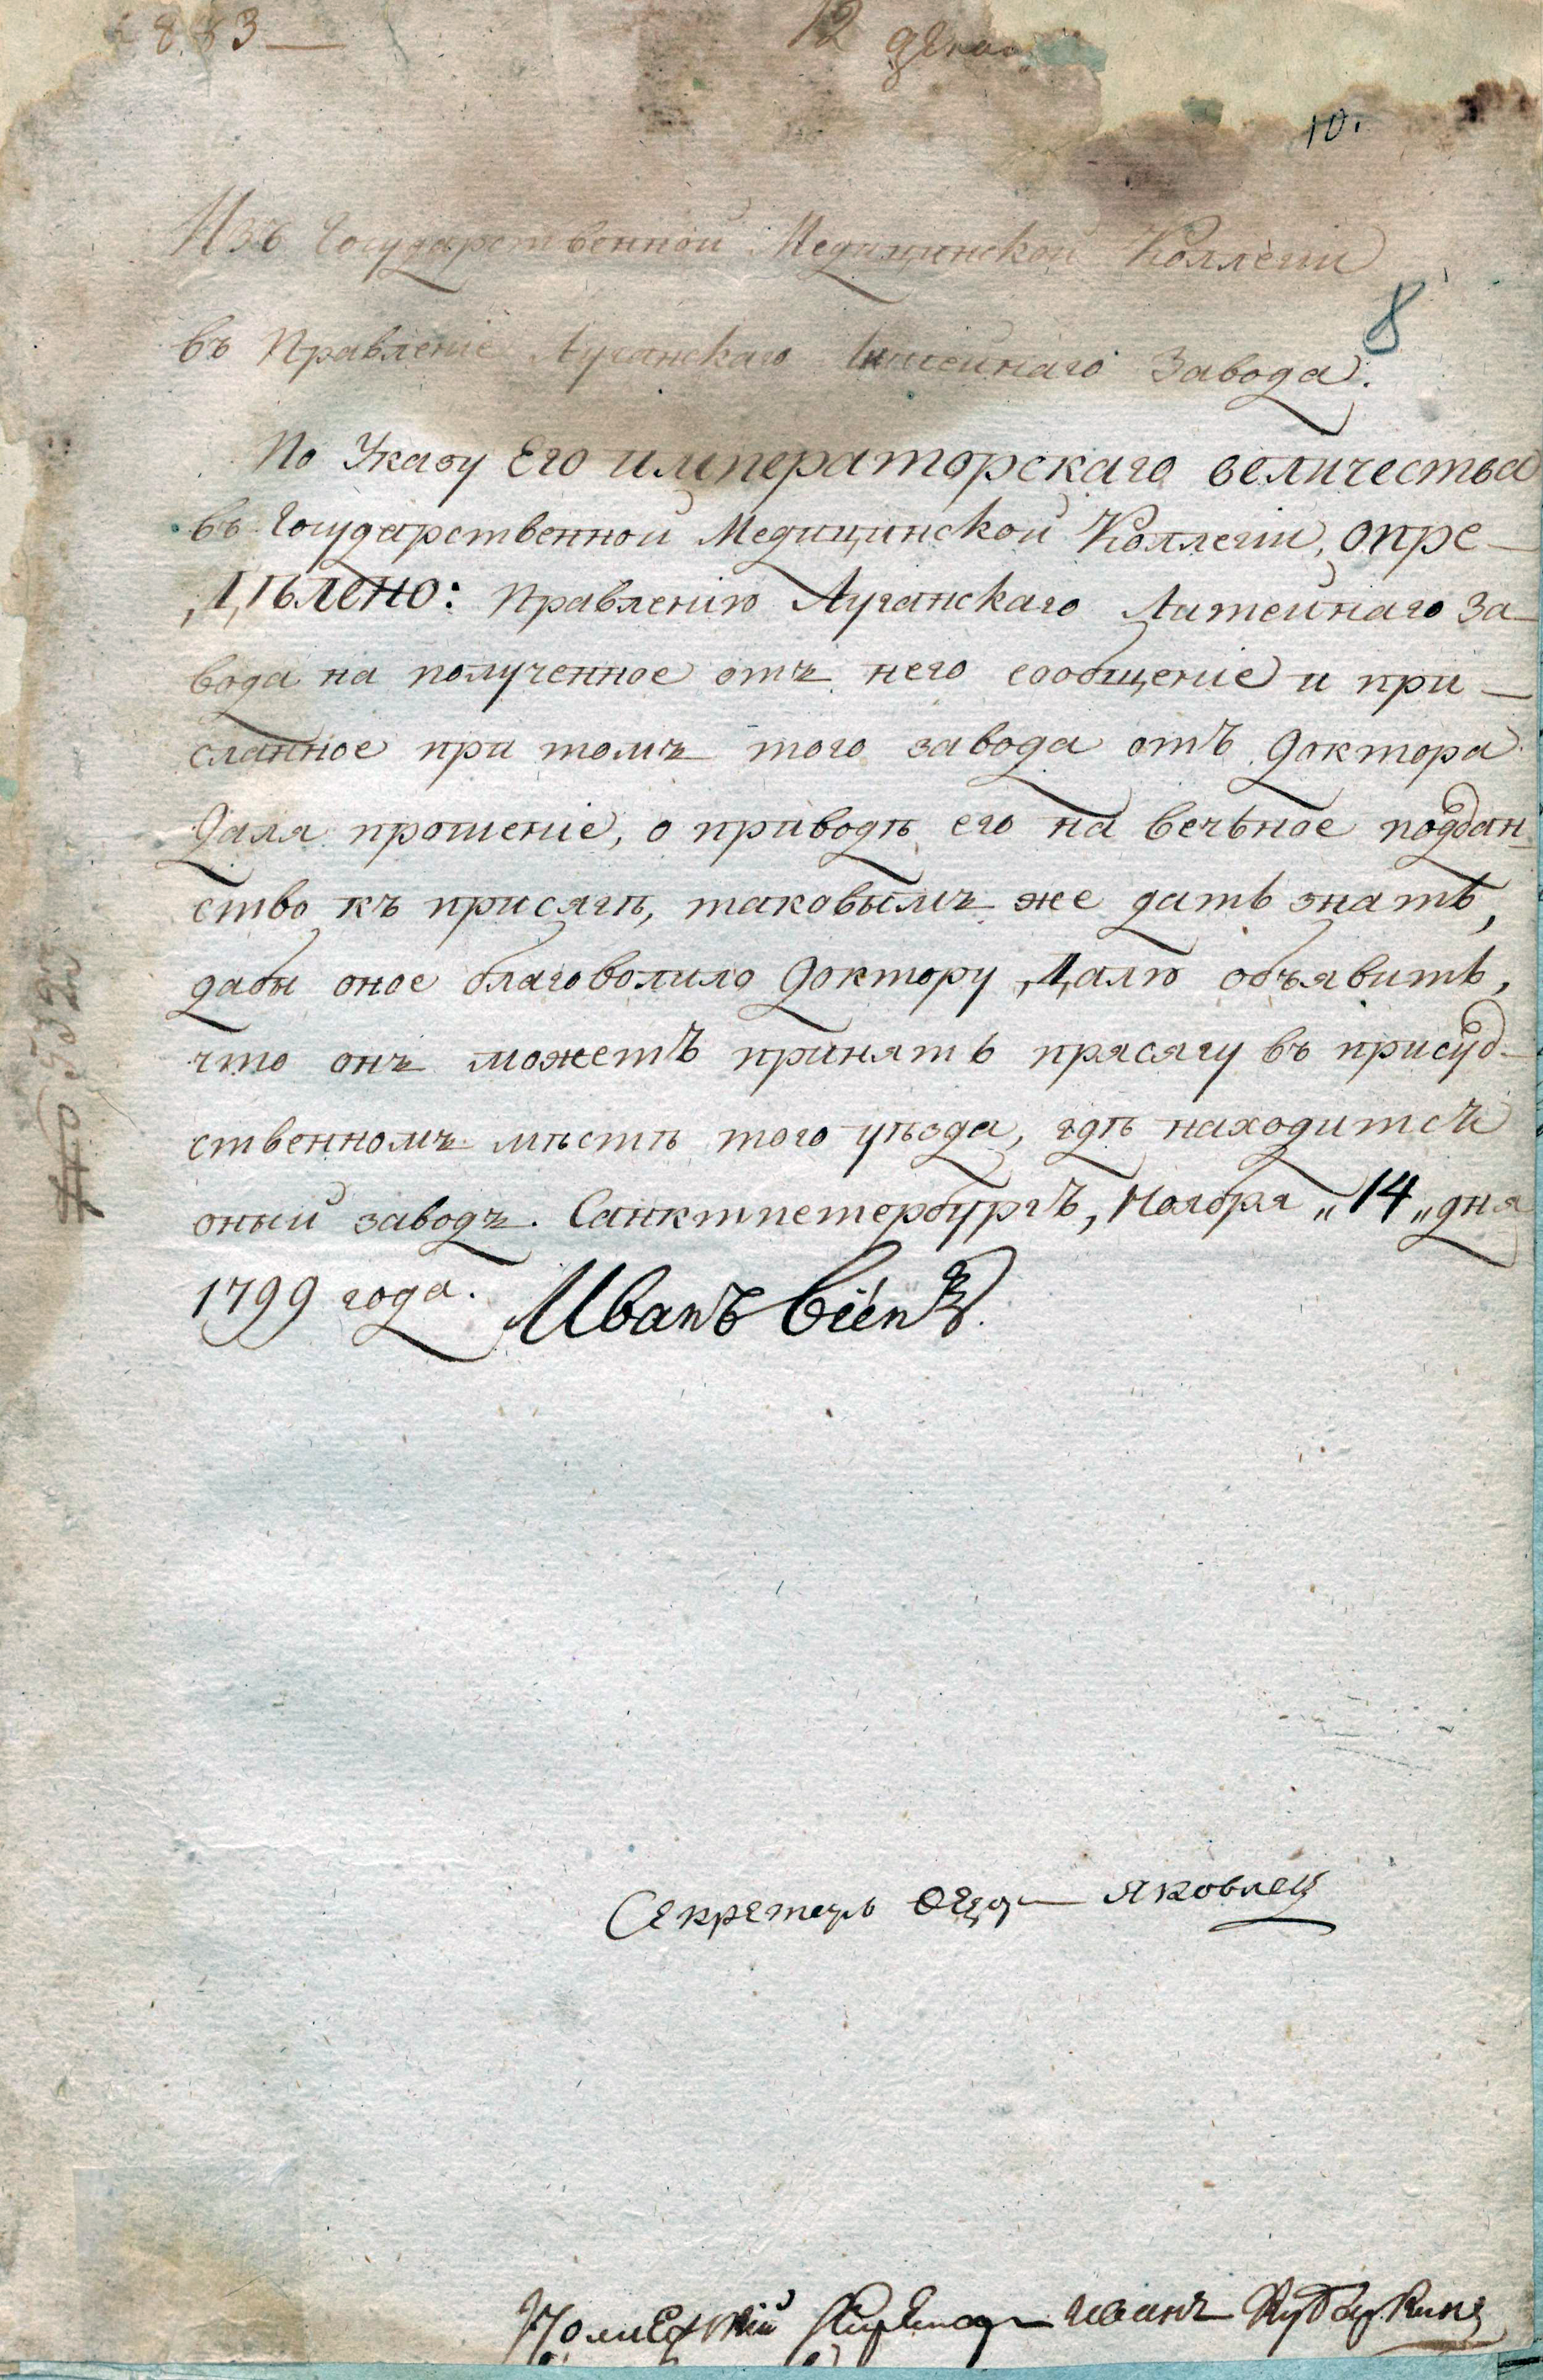 12 дека
10.
Изъ Государственной Медицинской Коллегіи
8
въ Правленіе Луганскаго Литейнаго Завода.
По Указу Его императорскаго величества
въ Государственной Медицинской Коллегіи, опре-
дѣлено: Правленію Луганскаго Литейнаго За-
вода на полученное отъ него сообщеніе и при-
сланное при томъ того завода отъ Доктора
Даля прошеніе, о приводѣ его на вечьное поддан-
ство къ присягѣ, таковымъ же дать знать,
дабы оное благоволило Доктору Далю объявить,
что онъ можетъ принять присягу въ присуд-
ственномъ мѣстѣ того уѣзда, гдѣ находится
оный заводъ. Санктпетербургъ, Ноября „14„ дня
1799 года. Иванъ Віенъ.
Секретарь Ѳедоръ Яковлев
Иванъ